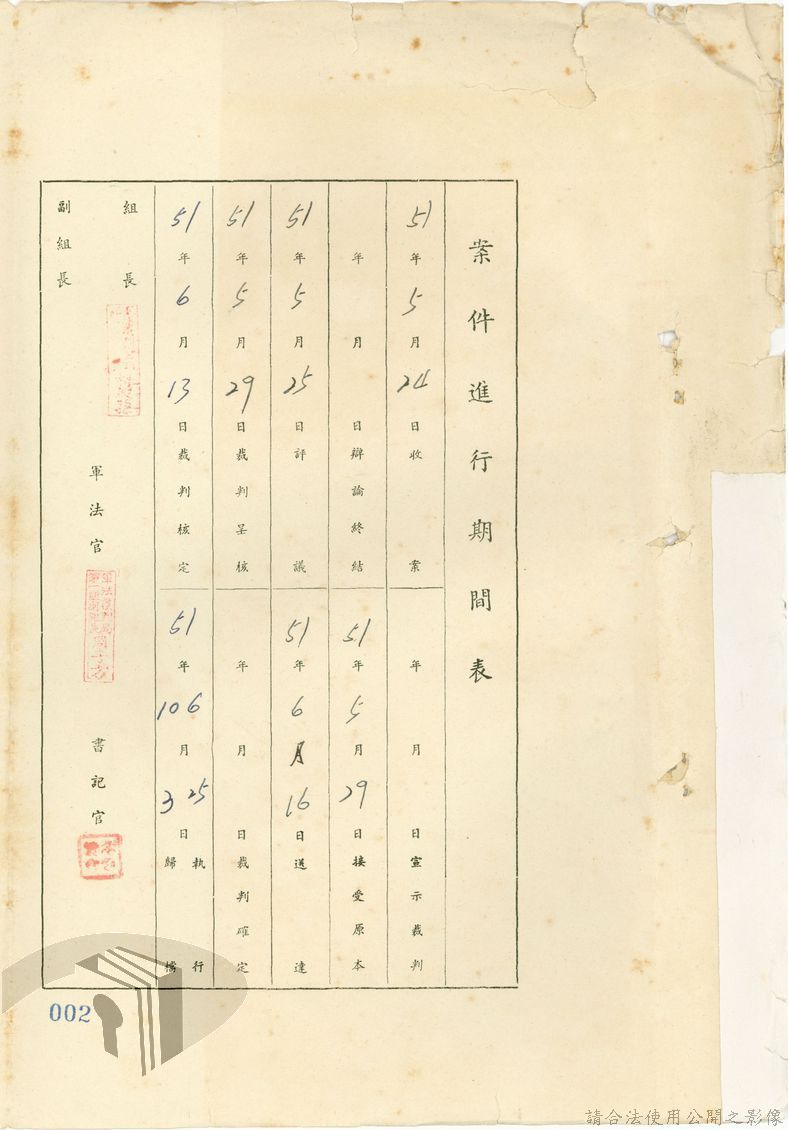 案件進行期間表
51年5月24日收案
年月日宣示裁判
年月日辯論終結
51年5月29日接受原本
51年5月25日評議
51年6月16日送達
51年5月29日裁判呈核
年月日裁判確定
51年6月13日裁判核定
51年6月25日執行
10月3日歸檔
組長
副組長
軍法官
書記官
002
請合法使用公開之影像